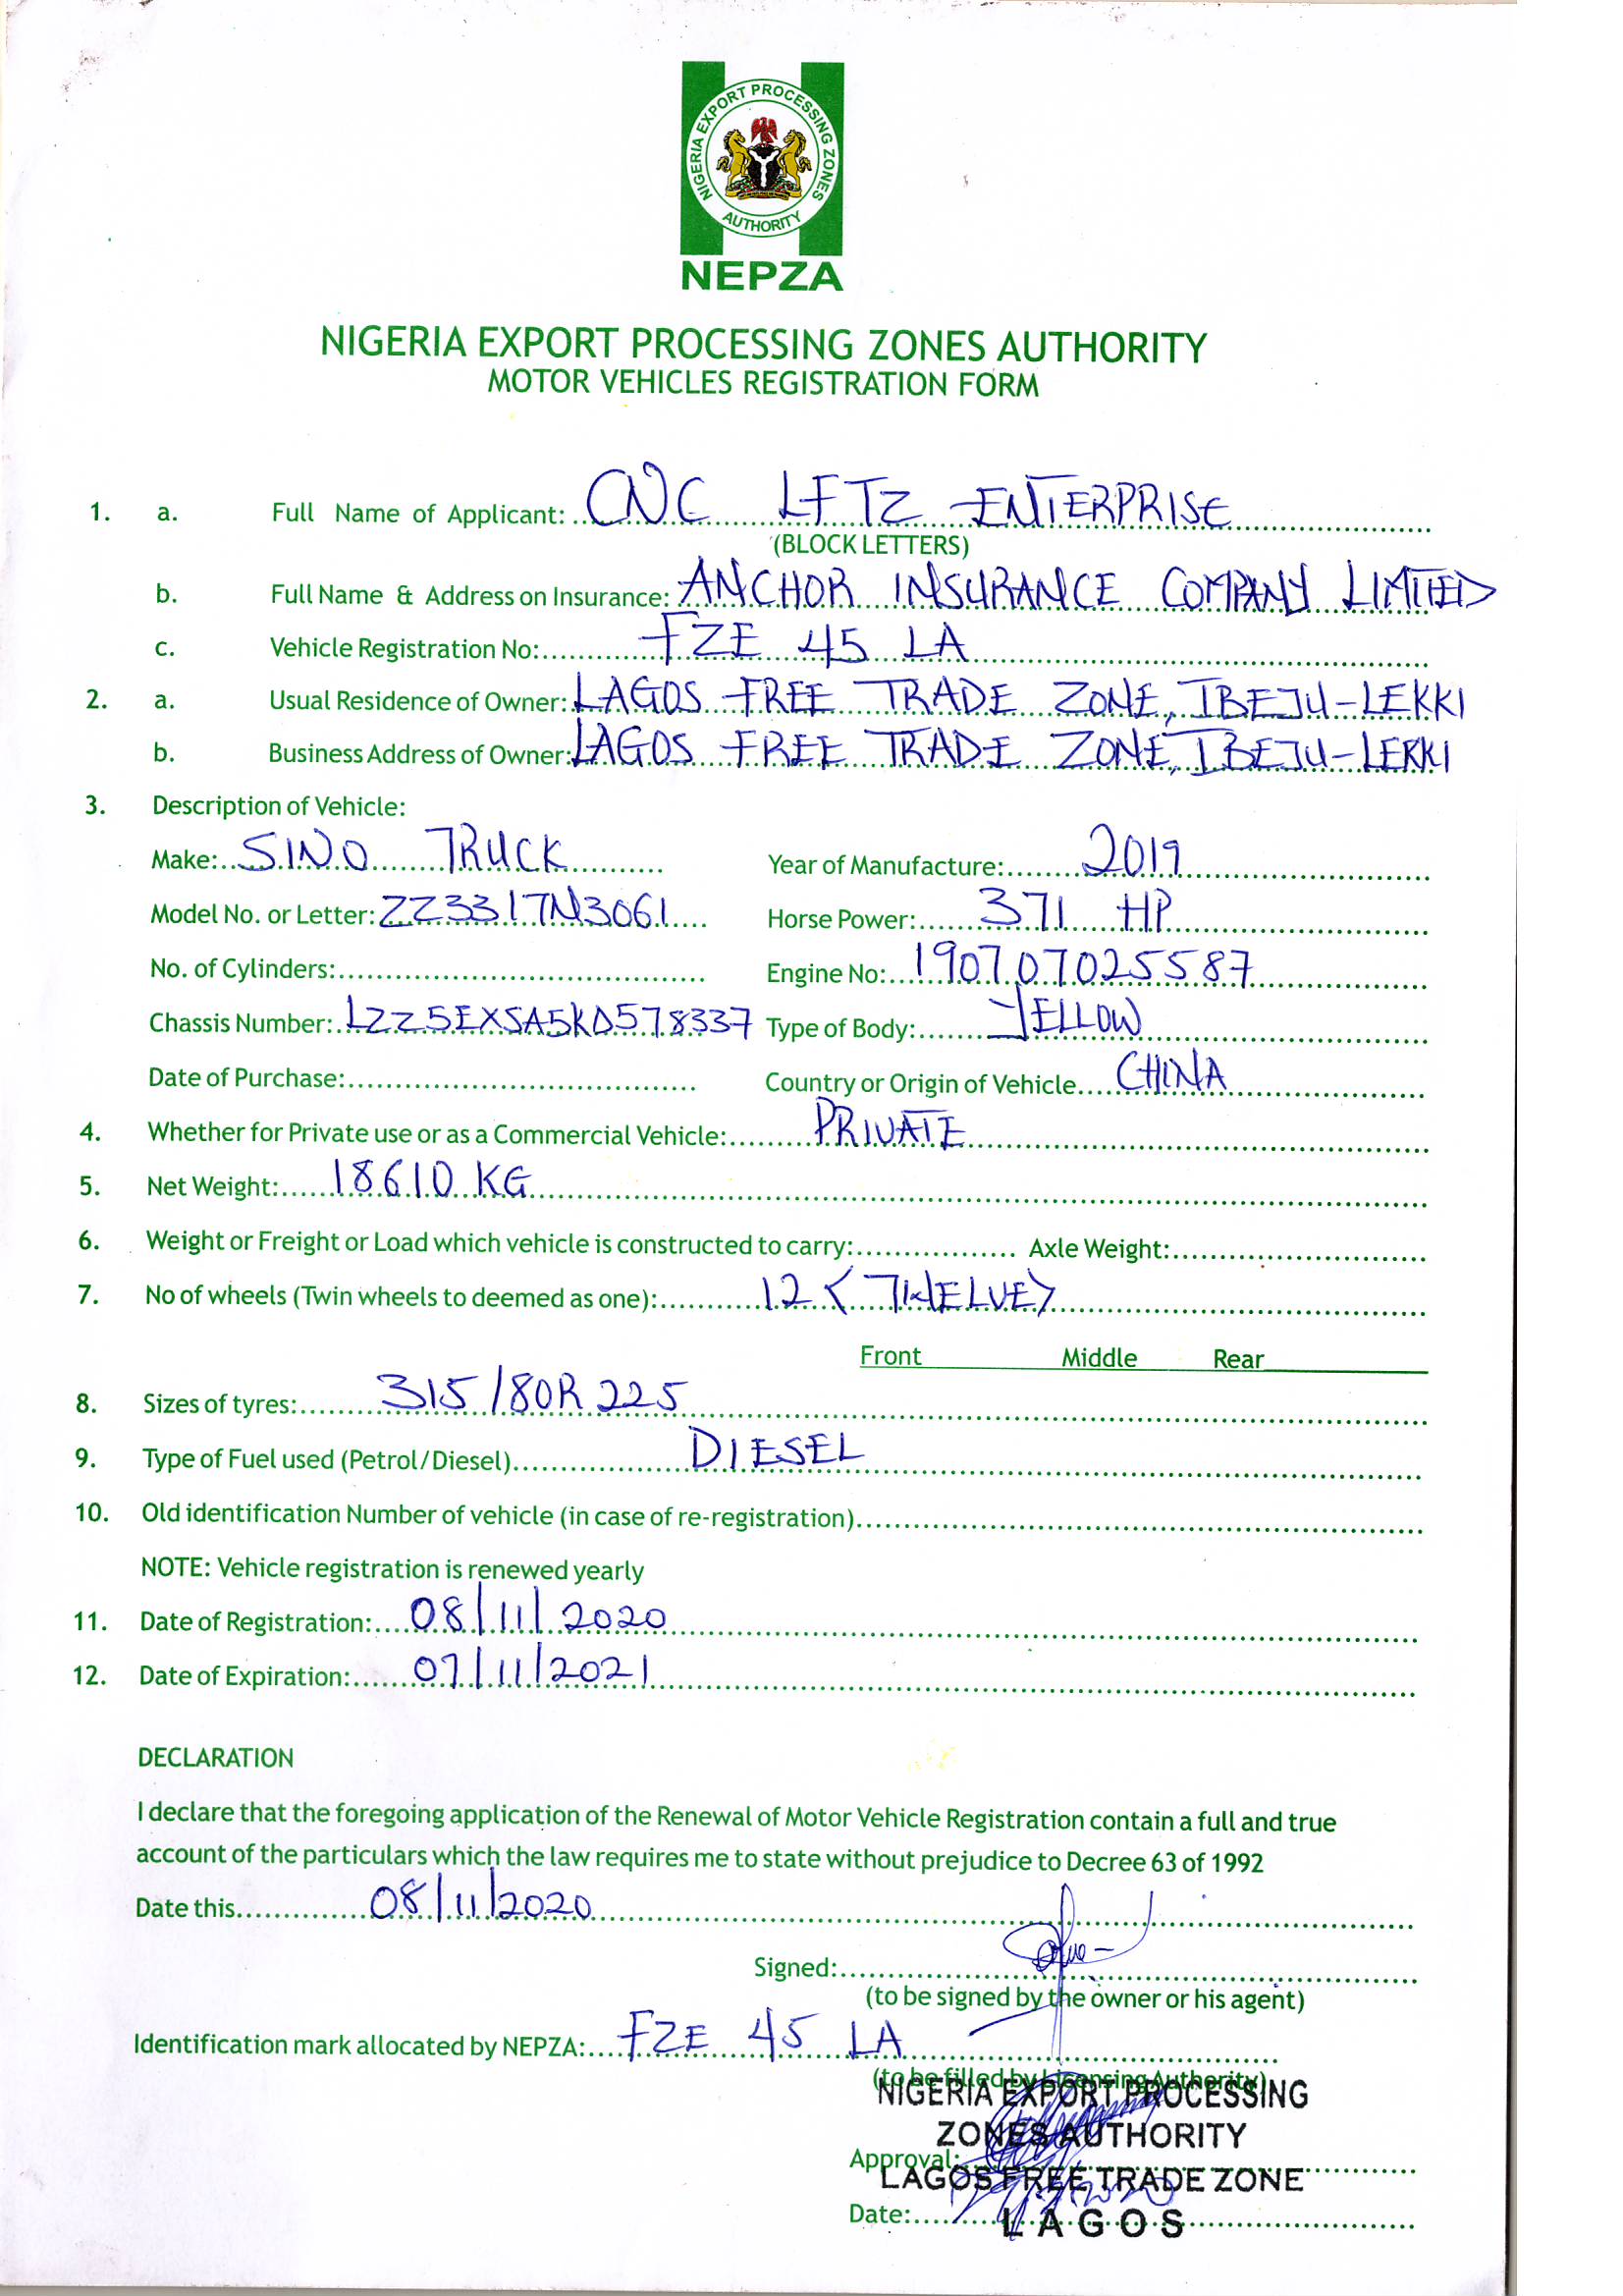 NIGERIA EXPORT PROCESSING ZONES
AUTHORITY
NEPZA
NIGERIA EXPORT PROCESSING ZONES AUTHORITY
MOTOR VEHICLES REGISTRATION FORM
1. a. Full Name of Applicant: CNC LFTZ ENTERPRISE
(BLOCK LETTERS)
b. Full Name & Address on Insurance: ANCHOR INSURANCE COMPANY LIMITED
c. Vehicle Registration No: FZE 45 LA
2. a. Usual Residence of Owner: LAGOS FREE TRADE ZONE, IBEJU-LEKKI
b. Business Address of Owner: LAGOS FREE TRADE ZONE, IBEJU-LEKKI
3. Description of Vehicle:
Make: SINO TRUCK Year of Manufacture: 2019
Model No. or Letter: ZZ3317N3061 Horse Power: 371 HP
No. of Cylinders: Engine No: 190707025587
Chassis Number: LZZ5EXSA5KD578337 Type of Body: YELLOW
Date of Purchase: Country or Origin of Vehicle CHINA
4. Whether for Private use or as a Commercial Vehicle: PRIVATE
5. Net Weight: 18610 KG
6. Weight or Freight or Load which vehicle is constructed to carry: Axle Weight:
7. No of wheels (Twin wheels to deemed as one): 12 < TWELVE>
Front Middle Rear
8. Sizes of tyres: 315/80R 225
9. Type of Fuel used (Petrol/Diesel) DIESEL
10. Old identification Number of vehicle (in case of re-registration)
NOTE: Vehicle registration is renewed yearly
11. Date of Registration: 08/11/2020
12. Date of Expiration: 07/11/2021
DECLARATION
I declare that the foregoing application of the Renewal of Motor Vehicle Registration contain a full and true
account of the particulars which the law requires me to state without prejudice to Decree 63 of 1992
Date this 08/11/2020
Signed:
(to be signed by the owner or his agent)
Identification mark allocated by NEPZA: FZE 45 LA
(to be filled by Licensing Authority)
NIGERIA EXPORT PROCESSING
ZONES AUTHORITY
Approval:
LAGOS FREE TRADE ZONE
Date:
LAGOS